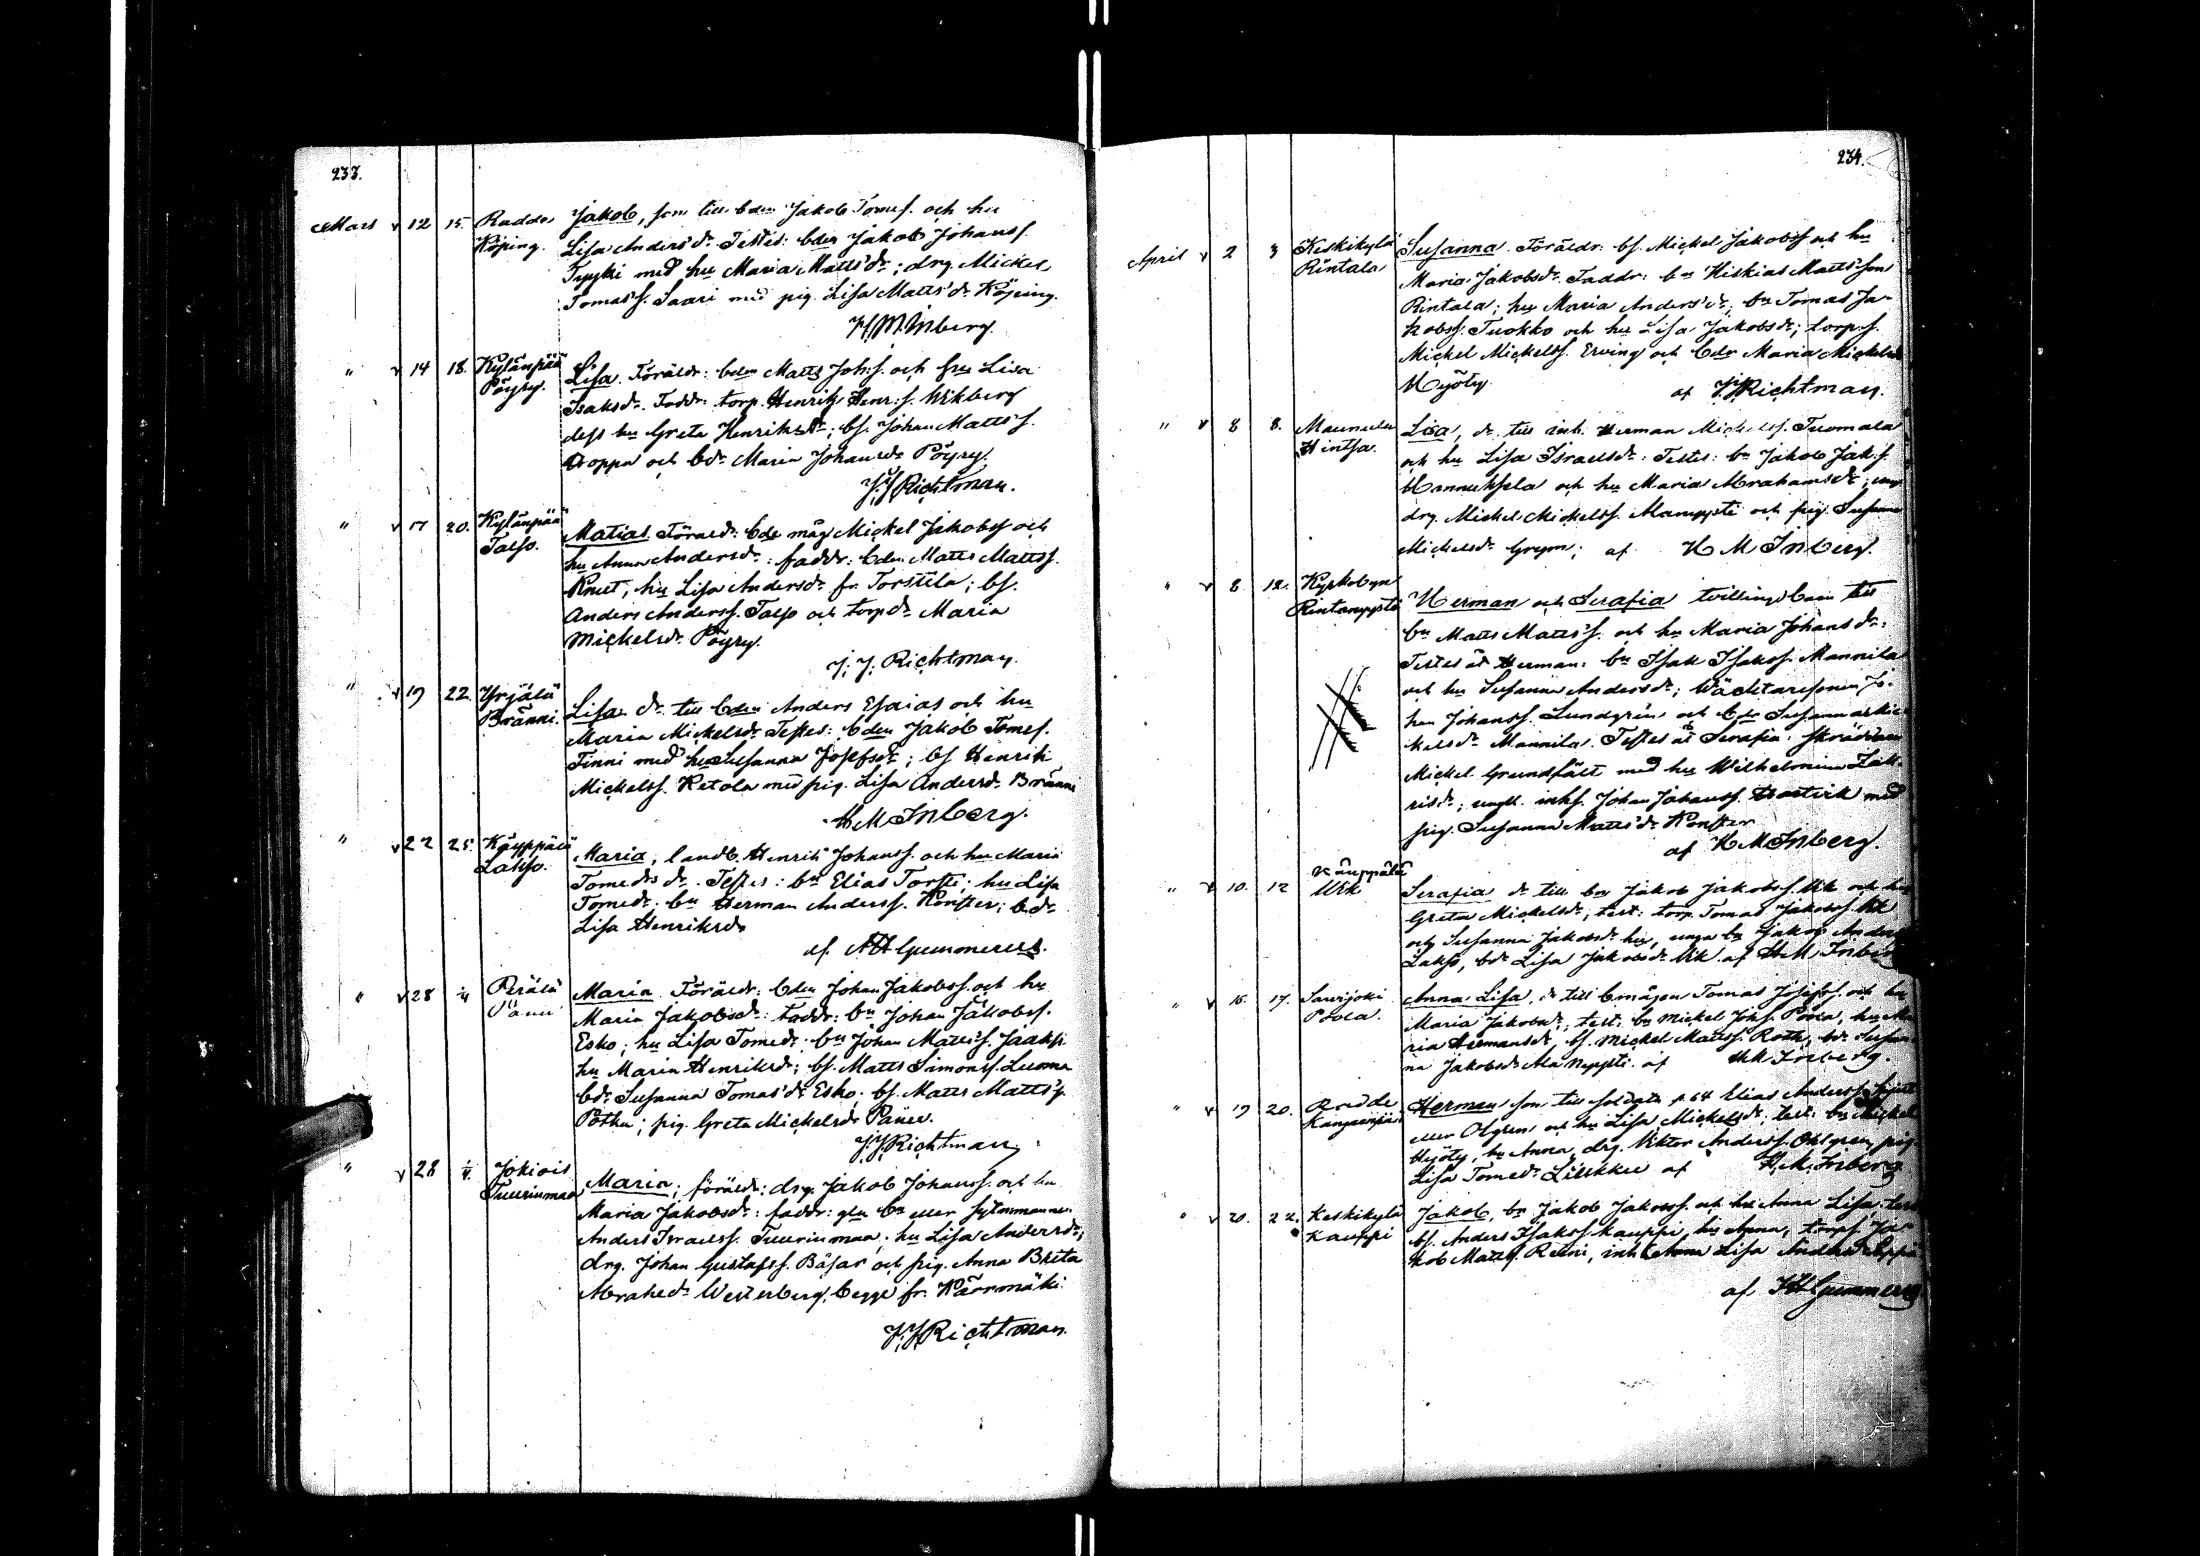 233.
Mars v 12 15. Raddo Jakob, son till bden Jakob Tomef. och hu
Köping. Lisa Anders dr. Testes: bden Jakob Johansf.
Typpi med hu Maria Matts dr; drg Mickel
Tomasf. Saari med pig. Lisa Matts dr Köping.
H M Inberg.
" v 14 18. Kylänpää Lisa. Föräldr: bden Matts Joh:f. och hu Lisa
Pöyry. Isaksdr. Faddr: torp. Henrik Henr:f. Wikberg
dess hu Greta Henriksdr; bf. Johan Mattsf.
Hoppa och bdr Maria Johansdr Pöyry.
J. J Richtman.
" v 17 20. Kylänpää Matias. Föräld: bde måg Mickel Jakobsf och
Talso. hu Anna Andersdr: faddr: bden Matts Mattsf.
Knut, hu Lisa Andersdr fr. Torstila; bf.
Anders Andersf. Talso och torpdr Maria
Mickelsdr Pöyry.
J. J. Richtman.
" v 19 22. Yrjälä Lisa dr till bden Anders Esaias och hu
Bränni. Maria Mickelsdr Testes: bden Jakob Tomef.
Finni med hu Susanna Josefsdr; bf Henrik
Mickelsf. Ketola med pig. Lisa Andersdr Bränni
H M Inberg.
" v 22 25. Käyppälä Maria, landb. Henrik Johansf. och hu Maria
Lakso. Tomedr. Testes: bn Elias Torsti; hu Lisa
Tomedr. bn Herman Andersf. Könster; bdr
Lisa Henriksdr
af. A H Gummerus.
" v 28 Perälä Maria. Föräldr: bden Johan Jakobsf. och hu
Maria Jakobsdr: faddr: bn Johan Jakobsf.
Esko; hu Lisa Tomedr; bn Johan Mattsf. Jaakki
hu Maria Henriksdr; bf. Matts Simonsf. Luoma
bdr Susanna Tomasdr Esko; bf. Matts Mattsf.
Potka; pig. Greta Mickelsdr Pänni.
J. J Richtman
" v 28 Jokiois Maria; föräldr; drg. Jakob Johansf. och hu
Tuurinmaa Maria Jakobsdr: faddr: gla bn eller sytnmannen
Anders Israelsf. Tuurinmaa; hu Lisa Andersdr,
drg. Johan Gustafsf. Bäsar och pig. Anna Brita
Abrahsdr Westerberg, begge fr. Kärrmäki.
J. J Richtman.
234.
April v 2 3 Keskikylä Susanna. Föräldr: bf. Mickel Jakobsf och hu
Rintala Maria Jakobsdr. Faddr: bn Hiskias Mattsson
Rintala; hu Maria Andersdr; bn Tomas Ja-
kobsf. Tuokko och hu Lisa Jakobsdr; torp.f.
Mickel Mickelsf. Erving och bdr Maria Mickelsdr
Hyöty. af J. J Richtman.
" v 8 8. Maunula Lisa, dr. till inh. Herman Mickelsf. Tuomala
Hintsa. och hu Lisa Israelsdr: Testes: bn Jakob Jak:f
Hannuksela och hu Maria Abrahamsdr;
drg. Mickel Mickelsf. Mannysti och pig. Susanna
Mickelsdr Grym; af H M Inberg.
" v 8 12. Kyrkobyn Herman och Serafia tvillingsbarn till
bn Matts Mattsf. och hu Maria Johansdr:
Testes åt Herman: bn Isak Isaksf. Mannila
och hu Susanna Andersdr; Wäcktaresonen Jo-
han Johansf. Lundgren och bdr Susanna Mic-
kelsdr Mannila. Testes åt Serafia: Skräddaren
Mickel Grundfält med hu Wilhelmina Zak-
risdr; ungk. inhf. Johan Johansf. med
pig. Susanna Mattsdr Könster
af H M Inberg.
" v 10. 12 Käuppälä
Wik Serafia dr till bn Jakob Jakobsf. Wik och hu
Greta Mickelsdr; test: torp. Tomas Jakobsf. Wik
och Susanna Jakobsdr hu, unga bn Jakob Andersf
Lakso, bdr Lisa Jakobsdr Wik af H M Inberg
" v 15. 17. Sarvijoki Anna Lisa, dr till bmågen Tomas Josefsf. och hu
Poola. Maria Jakobsdr, test: bn Mickel Johf. Poola, hu Ma-
ria Hermansdr, bf. Mickel Mattsf. Roth, bdr Susan-
na Jakobsdr af H M Inberg.
" v 19 20. Raddo Herman son till soldaten No 64 Elias Andersf.
eller Olgren och hu Lisa Mickelsdr, test: bn Mickel
Hyöty, hu Anna, drg. Viktor Andersf. Ohlgren, pig.
Lisa Tomedr Liukku af H. M. Inberg
" v 20. 22. Keskikylä Jakob, bn Jakob Jakobsf. och hu Anna Lisa, test:
Kauppi bf. Anders Isaksf Kauppi, hu Anna, torpf. Ja-
kob Mattsf. Reini, inh Anna Lisa Andersdr
af A H Gummerus